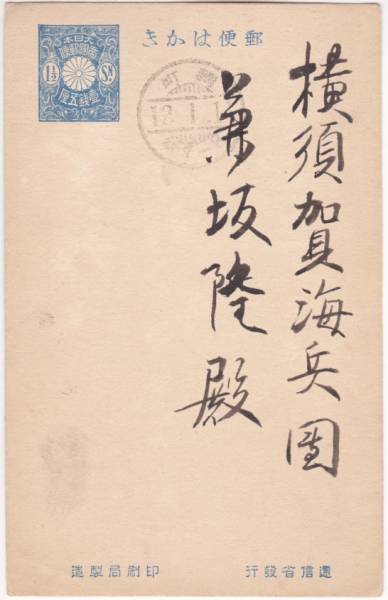 郵便はかき
大日本
帝國郵便
1½ Sn
壹銭五厘
12.1.1
横須賀海兵團
兼坂隆殿
遞信省發行
印刷局製造